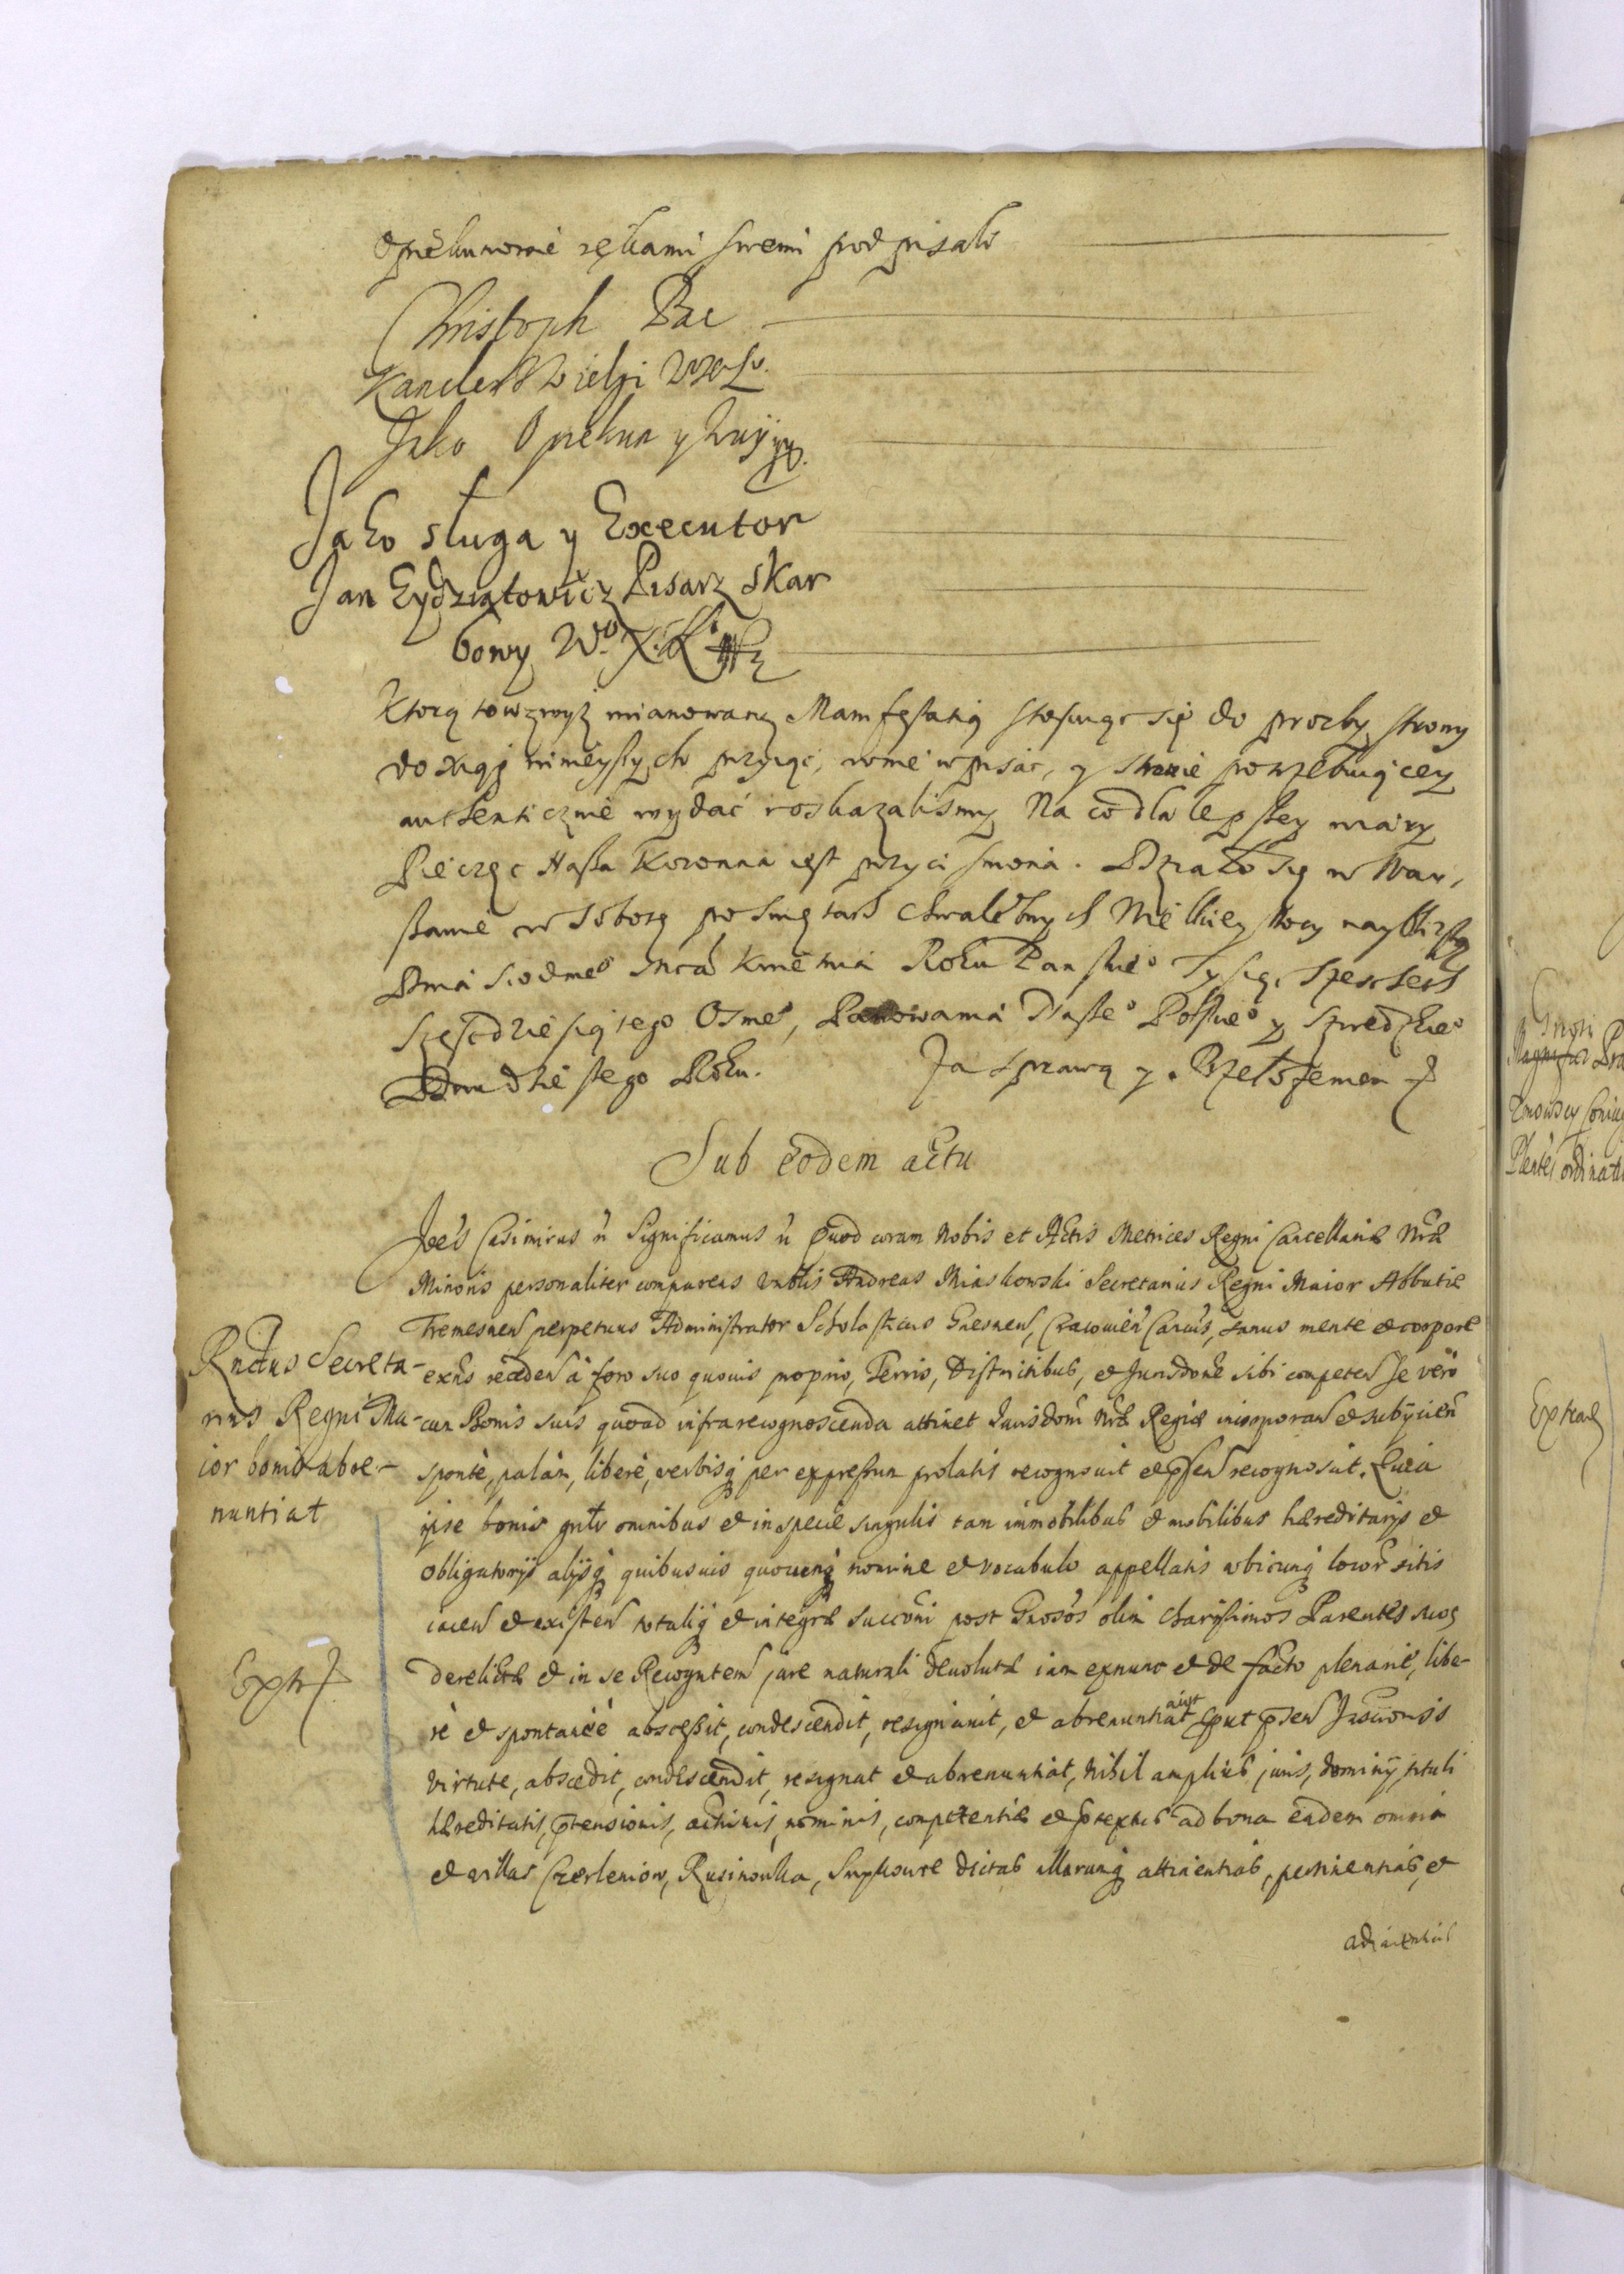 Opiekunowie rękami swemi podpisali
Christoph Pac
Kanclerz Wielgi WXL.
Jako Opiekun
Jako sługa y Executor
Jan Eydziatowicz Pisarz Skar
bowy W° X. L°
Ktorą to wzwyż mianowaną Manifestatią stosuiąc się do prozby strony
do xiąg ninieyszych przyiąc, w nie wpisac, y stronie potrzebuiącey
authenticznie wydać roskazalismy Na co dla lepszey wiary
Pieczęc Nasza Koronna iest przycisniona. Działo się w War,
szawie w Sobotę po Swiętach Chwalebnych Wielkiey Nocy naybliższą
Dnia Siodme° Mca Kwietnia Roku Panskie° Tysiąc Szescset
Szescdziesiątego Osme°, Panowania Nasze° Polskie° y Szwedzkie°
Dwudziestego Roku. Ja Sprawą y.
Sub eodem actu
Joēs Casimirus ñ Significamus ñ Quod coram Nobis et Actis Metrices Regni Cancellariæ Nræ
Minoris personaliter comparens Vnblis Andreas Miaskowski Secretarius Regni Maior Abbatiæ
Tremesnen perpetuus Administrator Scholasticus Gnesnen, Cracouien Canus, sanus mente et corpore
Rndus Secreta-
exñs recedeñ à foro suo quouis proprio, Terris, Districtibus, et Jurisdone sibi competeñ Se vero
rius Regni Ma-
cum Bonis suis quoad infrarecognoscenda attinet Jurisdoni Nræ Regiæ incorporañ et subijcieñ
ior bonis abre-
sponte, palàm, liberè, verbisq per expressum prolatis recognouit et pñsen recognoscit. Quia
nuntiat
ipse bonis gnlr omnibus et in specie singulis tam immobilibus et mobilibus hæreditarijs et
obligatorijs alijsq quibusuis quocunq nomine et vocabulo appellatis vbicunq locor sitis
iaceñ et existeñ totaliq et integræ succoni post Gnosos olim charissimos Parentes suos
Extr
derelictæ et in se Recognten jure naturali deuolutæ iam exnunc et de facto plenariè, libe-
rè et spontaneè abscessit, condescendit, resignauit, et abrenuntiat auit put psen Jnscronis
virtute, abscedit, condescendit, resignat et abrenuntiat, nihil amplius juris, dominij, tituli
hæreditatis, ptensionis, actionis, nominis, competentiæ et ptextus ad bona eadem omnia
et villas Czerleniow, Rusinowka, dictas illarumq attinentias, pertinentias, et
adiacentias
Extrad